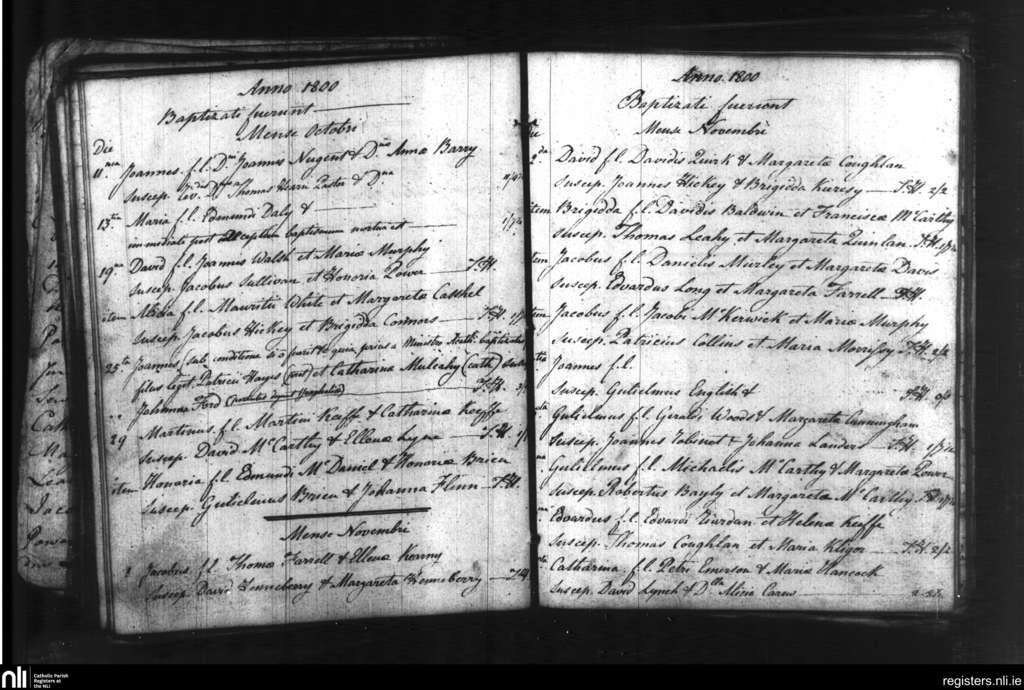 Anno 1800
Baptizati fuerunt
Mense Octobri
Die
Joannes f.l. Joannis Nugent & Annæ Barry
Suscep. Thomas Hearn Pastor &
13 Maria f.l. Edmundi Daly &
immediate post baptismum mortua est
19 David f.l. Joannis Walsh et Mariæ Murphy
Suscep. Jacobus Sullivan et Honoria Power T.H.
item Alicia f.l. Mauritii White et Margaretæ Casshel
Suscep. Jacobus Hickey et Brigidda Connors T.H.
25 Joannes sub conditione quia prius a Ministro
filius legit. Patricii Hayes et Catharinæ Mulcahy (cath)
Johanna Ford T.H.
29 Martinus f.l. Martini Keeffe & Catharinæ Keeffe
Suscep. David McCarthy & Ellena Lyne T.H.
item Honoria f.l. Edmundi McDaniel & Honoriæ Brien
Suscep. Gulielmus Brien & Johanna Flinn T.H.
Mense Novembri
Jacobus f.l. Thomæ Farrell & Ellenæ Kearny
Suscep. David Henneberry & Margareta Henneberry T.H.
Anno 1800
Baptizati fueriont
Mense Novembri
David f.l. Davidis Quirk & Margaretæ Coughlan
Suscep. Joannes Hickey & Brigidda T.H. 2/2
item Brigidda f.l. Davidis Baldwin et Franciscæ McCarthy
Suscep. Thomas Leahy et Margareta Quinlan T.H.
Jacobus f.l. Danielis Murley et Margaretæ Davis
Suscep. Edvardus Long et Margareta Farrell T.H.
Jacobus f.l. Jacobi McKerwick et Mariæ Murphy
Suscep. Patricius Collins et Maria Morrissy T.H. 2/2
Joannes f.l.
Suscep. Gulielmus English & T.H.
Gulielmus f.l. Geraldi Woods & Margaretæ Cunningham
Suscep. Joannes Tobinet & Johanna Landers T.H.
Gulielmus f.l. Michaelis McCarthy & Margaretæ Power
Suscep. Robertus Bayly et Margareta McCarthy T.H.
Edvardus f.l. Edvardi Riordan et Helenæ Keeffe
Suscep. Thomas Coughlan et Maria T.H. 2/2
Catharina f.l. Petri Emerson & Mariæ Hancock
Suscep. David Lynch & Alicia Carew
nli
Catholic Parish
Registers at
the NLI
registers.nli.ie